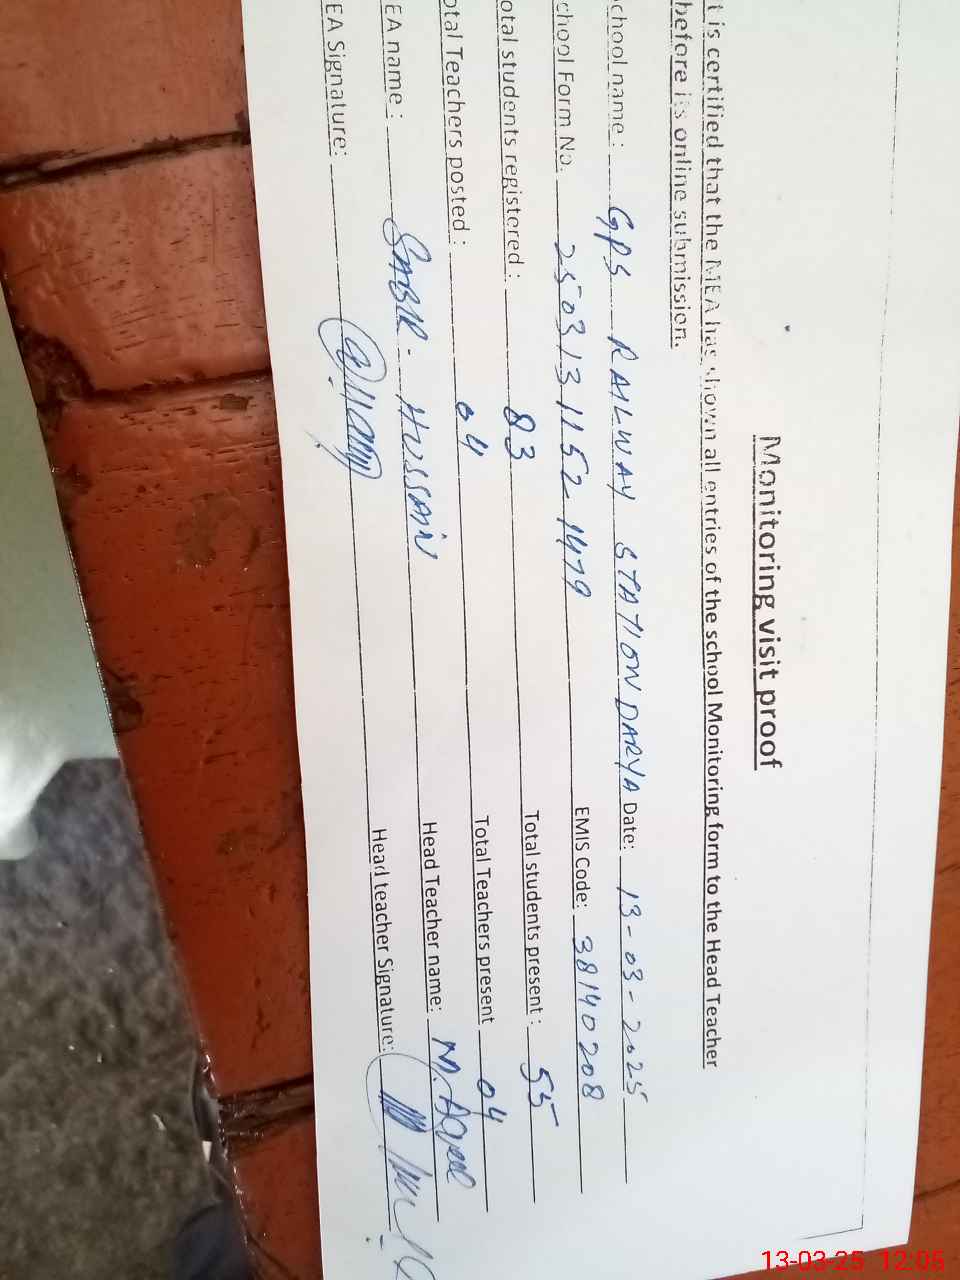 Monitoring visit proof
t is certified that the MEA has shown all entries of the school Monitoring form to the Head Teacher
before its online submission.
chool name : GPS RAILWAY STATION DARYA Date: 13-03-2025
chool Form No. 25031311521479 EMIS Code: 38140208
otal students registered : 83 Total students present : 55
otal Teachers posted : 04 Total Teachers present 04
EA name : SABIR HUSSAIN Head Teacher name: M.
EA Signature: Head teacher Signature:
13-03-25 12:05